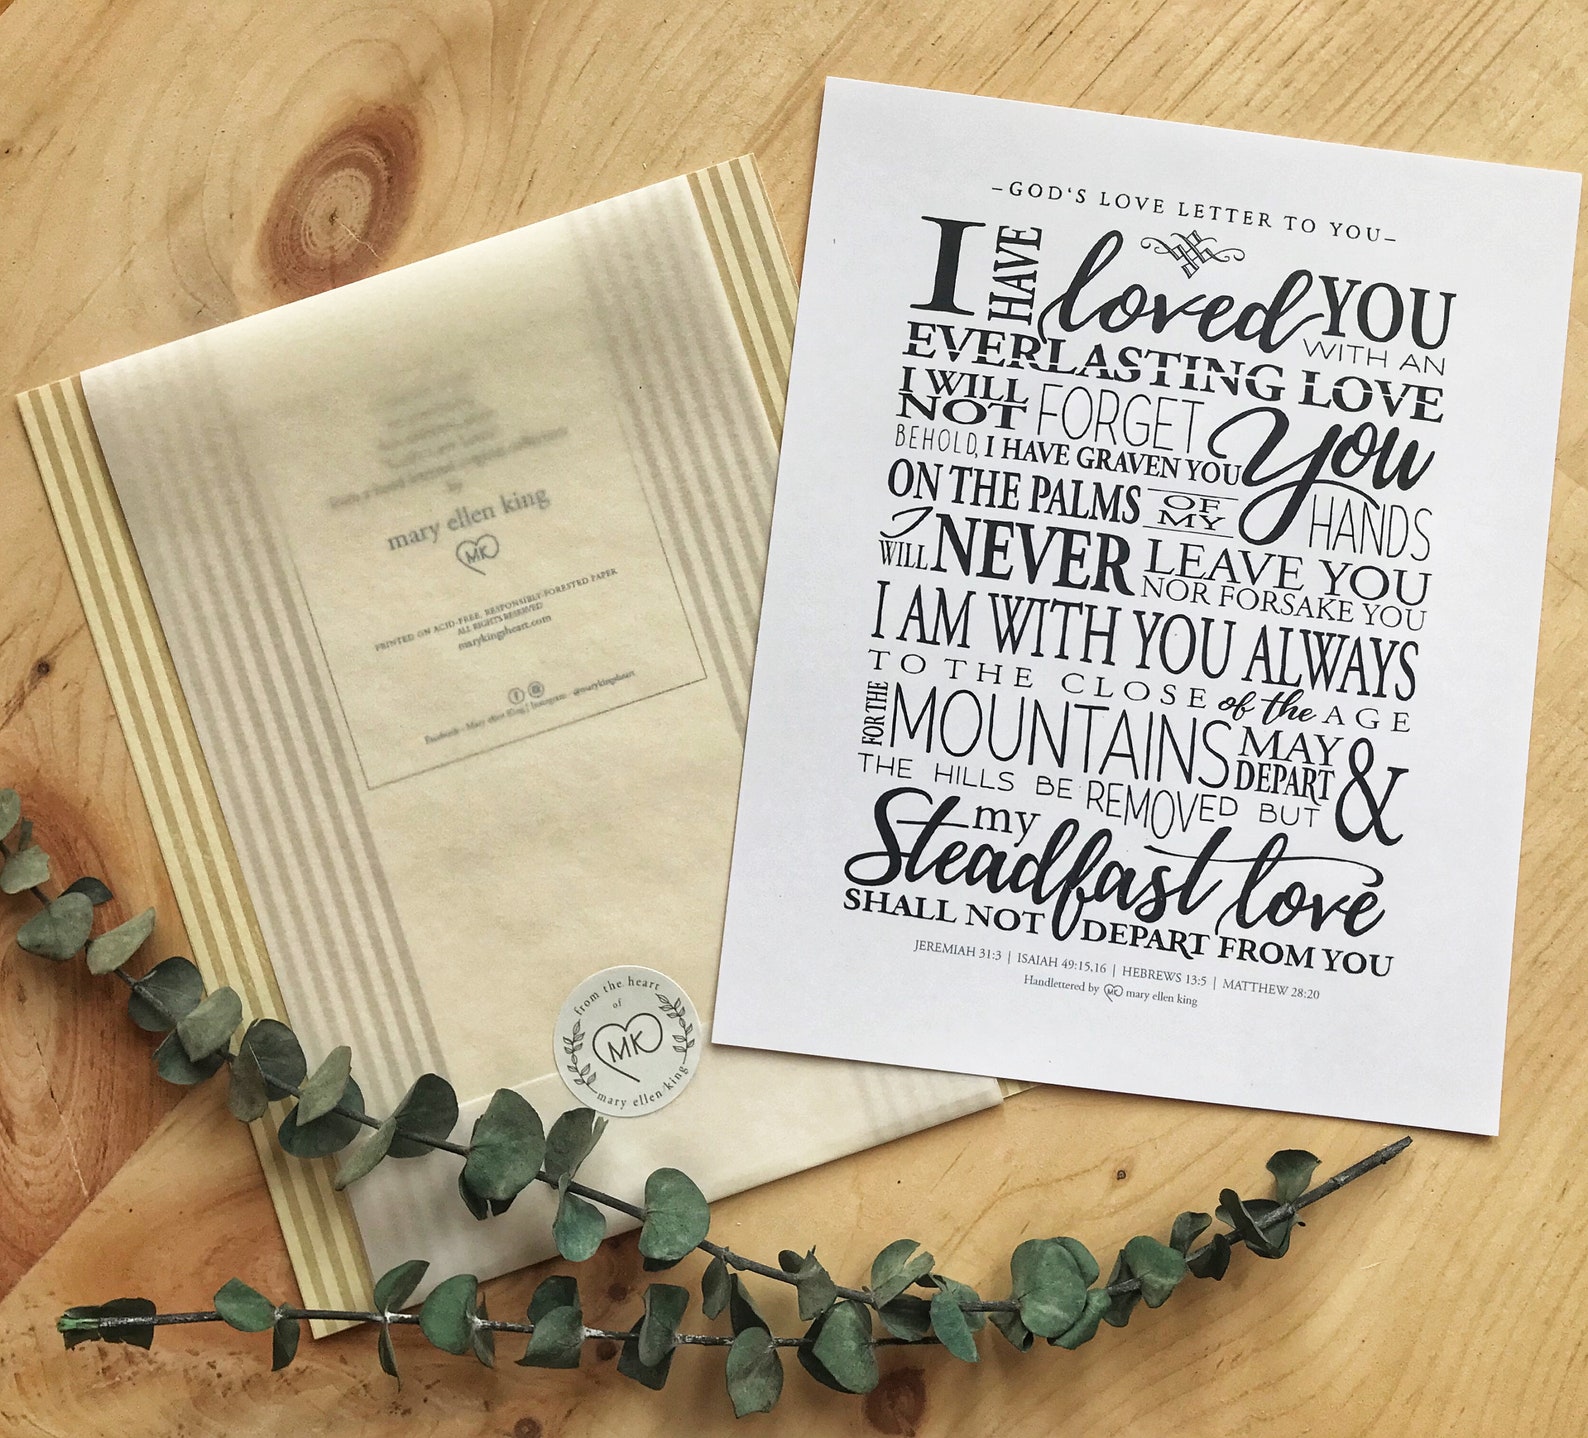 –GOD'S LOVE LETTER TO YOU–
I HAVE loved YOU
WITH AN
EVERLASTING LOVE
I WILL
NOT FORGET You
BEHOLD, I HAVE GRAVEN YOU
ON THE PALMS OF MY HANDS
I WILL NEVER LEAVE YOU
NOR FORSAKE YOU
I AM WITH YOU ALWAYS
TO THE CLOSE of the AGE
FOR THE MOUNTAINS MAY DEPART &
THE HILLS BE REMOVED BUT
my
Steadfast love
SHALL NOT DEPART FROM YOU
JEREMIAH 31:3 | ISAIAH 49:15,16 | HEBREWS 13:5 | MATTHEW 28:20
Handlettered by MK mary ellen king
by
mary ellen king
MK
PRINTED ON ACID-FREE, RESPONSIBLY-FORESTED PAPER
ALL RIGHTS RESERVED
marykingsheart.com
Facebook - Mary ellen King | Instagram - @marykingsheart
from the heart
of
MK
mary ellen king